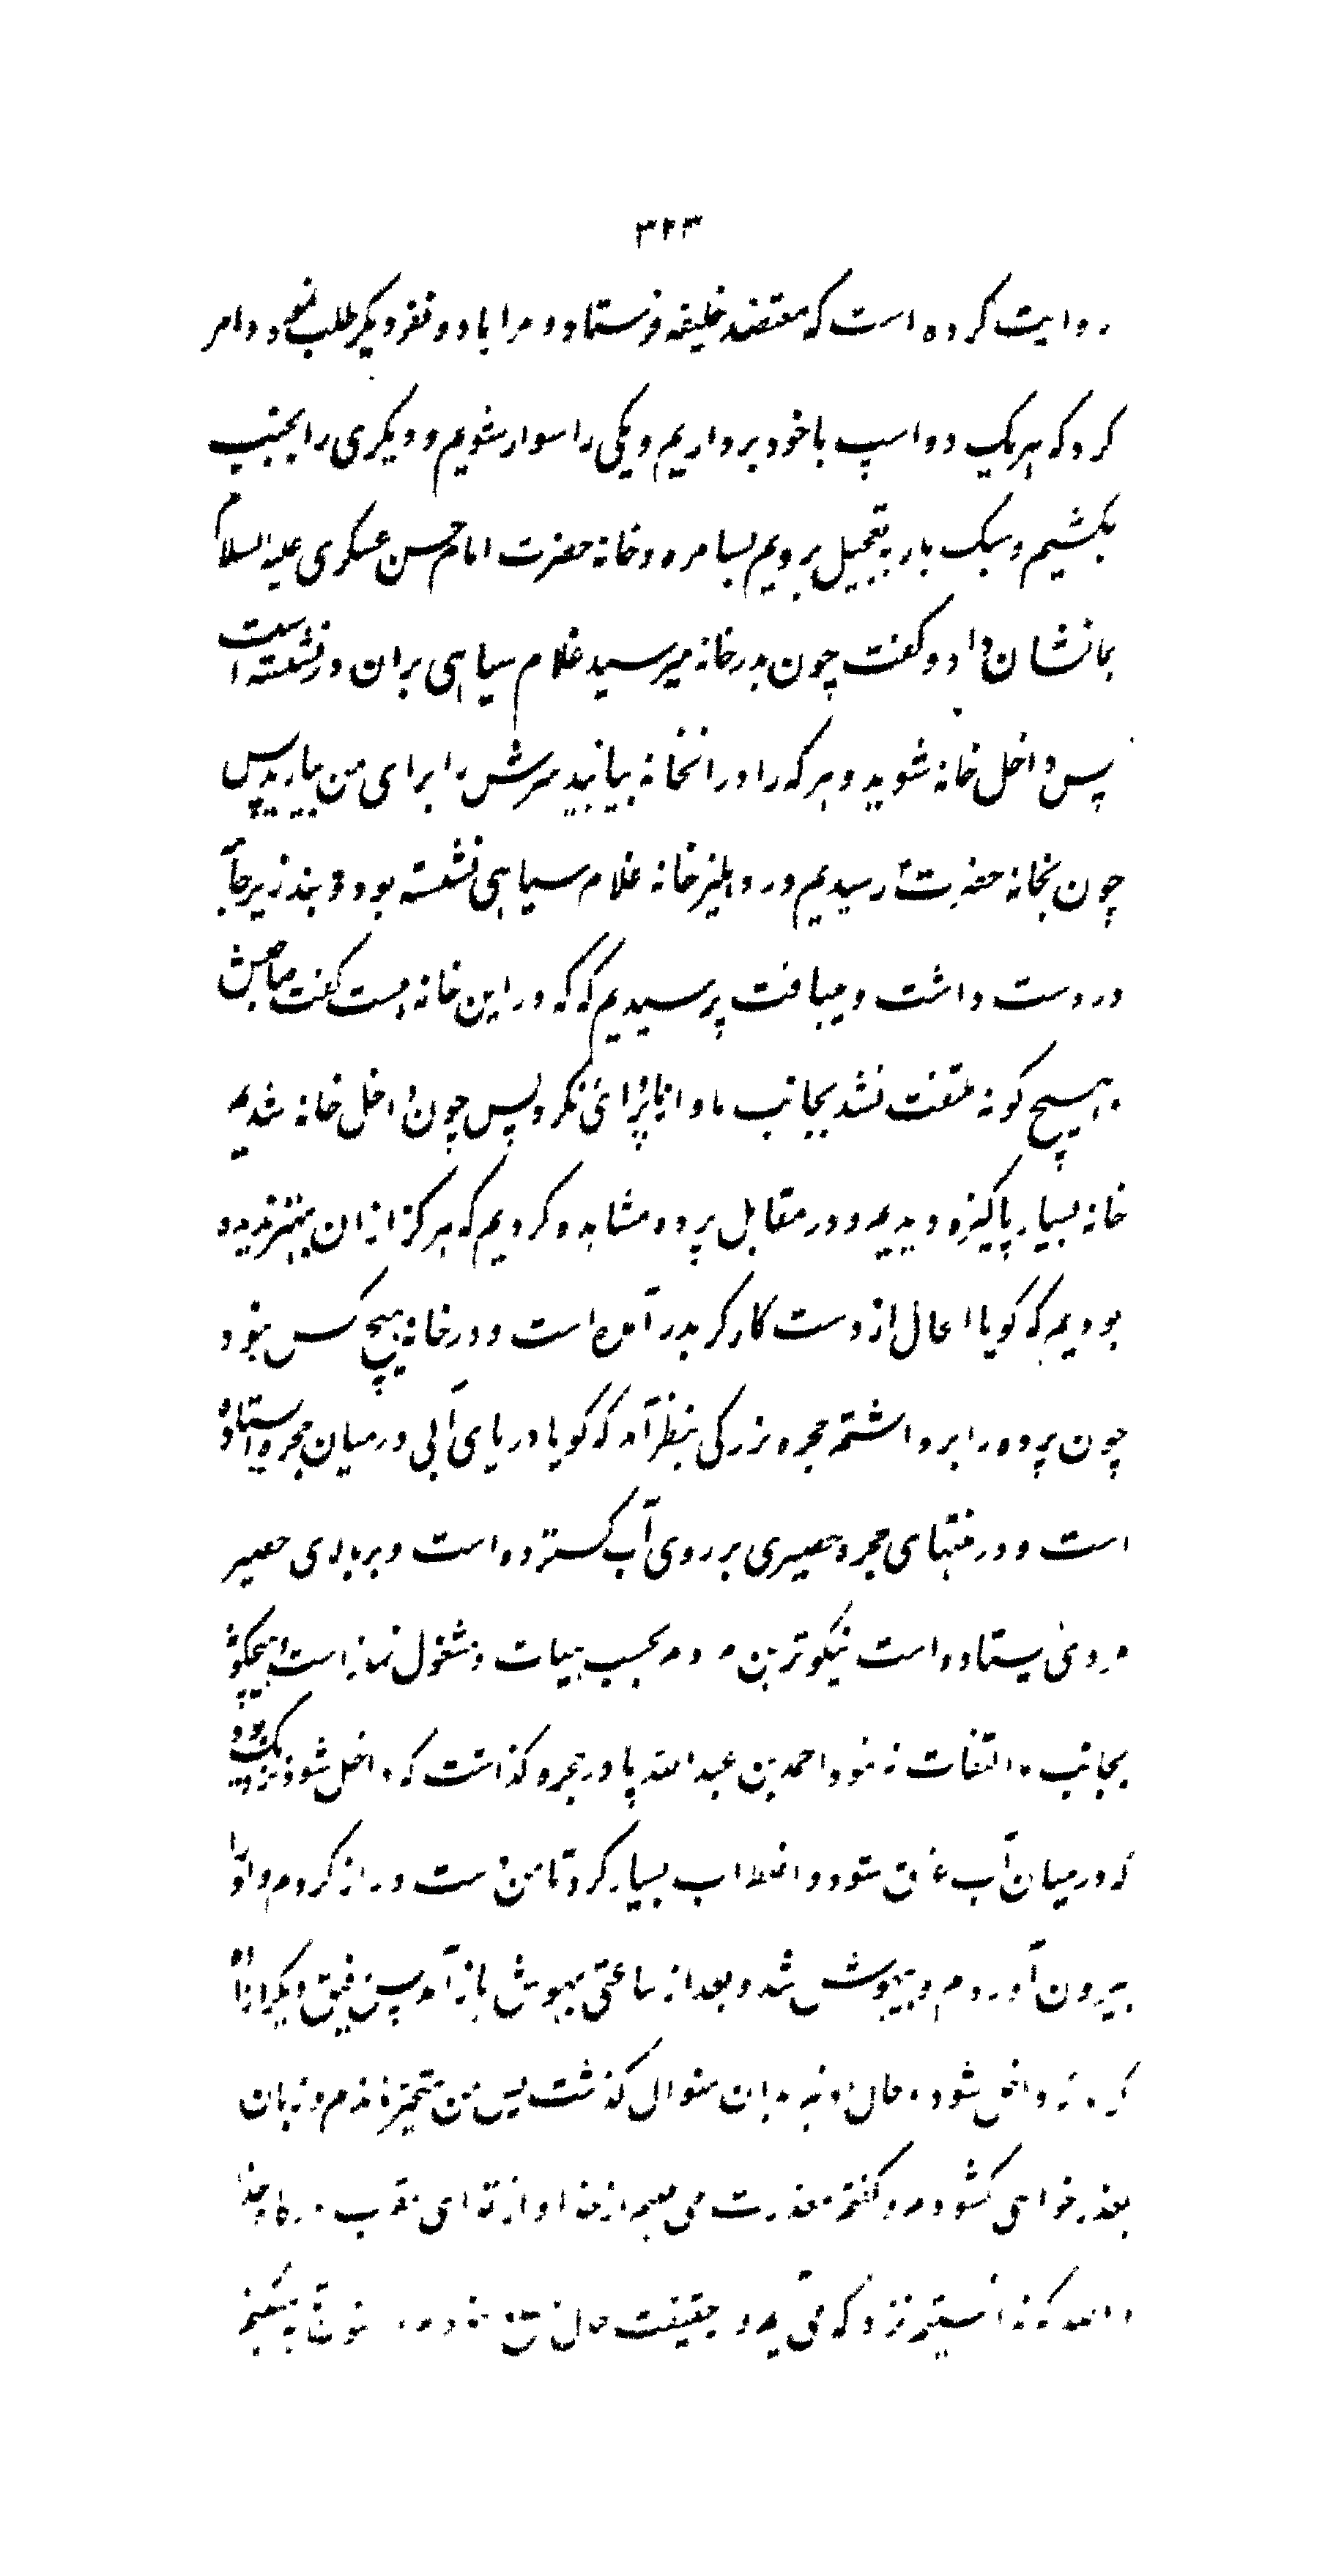 ۳۲۳
روایت کرده است که معتضد خلیفه فرستاد و مرا با دو نفر دیگر طلب نمود و امر
کرد که هر یک دو اسب با خود برداریم و یکی را سوار شویم و دیگری را بجنیب
بکشیم و سبک بار به تعجیل برویم بسامره و خانه حضرت امام حسن عسکری علیه السلام
بما نشان داد و گفت چون بدر خانه میرسید غلام سیاهی بران در نشسته است
پس داخل خانه شوید و هر که را در انخانه بیابید سرش را برای من بیارید پس
چون بخانه حضرت رسیدیم در دهلیز خانه غلام سیاهی نشسته بود و بند زیر جامه
در دست داشت و میبافت پرسیدیم که که در این خانه هست گفت صاحبش
بهیچ گونه ملتفت نشد بجانب ما و از ما پروائی نکرد پس چون داخل خانه شدیم
خانه بسیار پاکیزه دیدیم و در مقابل پرده مشاهده کردیم که هرگز از ان بهتر ندیده
بودیم که گویا الحال از دست کارگر بدر آمده است و در خانه هیچ کس نبود
چون پرده را برداشتم حجره بزرگی بنظر آمد که گویا دریای آبی در میان حجره ایستاده
است و در منتهای حجره حصیری بر روی آب گسترده است و بر بالای حصیر
مردی ایستاده است نیکوترین مردم بحسب هیات و مشغول نماز است و هیچگونه
بجانب ما التفات ننمود احمد بن عبدالله پا در حجره گذاشت که داخل شود نزدیک بود
که در میان آب غرق شود و اضطراب بسیار کرد تا من دست دراز کردم و او را
بیرون آوردم و بیهوش شد و بعد از ساعتی بهوش باز آمد پس رفیق دیگر اراده
کرد که داخل شود و حال او نیز بدان منوال گذشت پس من متحیر ماندم و زبان
بعذر خواهی گشودم و گفتم معذرت می طلبم از خدا و از تو ای مقرب درگاه خدا
والله که ندانستم نزد که می آیم و حقیقت حال